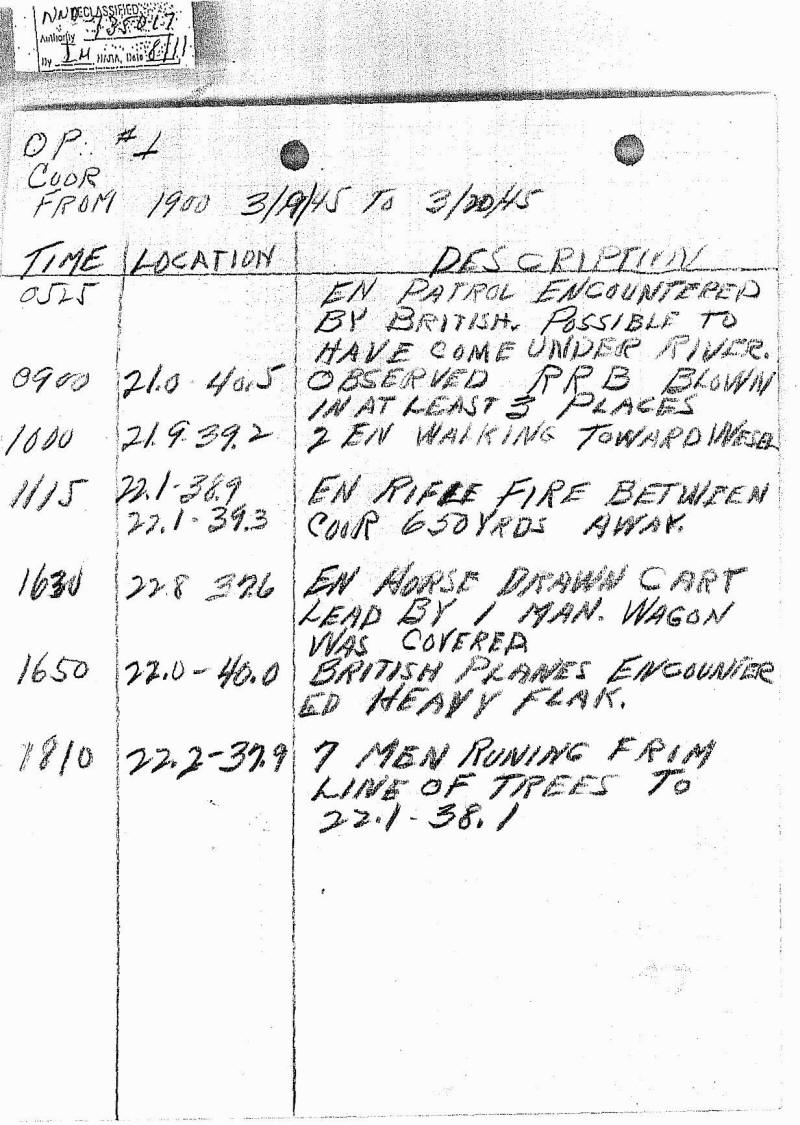 DECLASSIFIED
Authority NND 735017
By IM NARA, Date 6/11
OP: #1
COOR
FROM 1900 3/19/45 TO 3/20/45
TIME LOCATION DESCRIPTION
0525 EN PATROL ENCOUNTERED
BY BRITISH. POSSIBLE TO
HAVE COME UNDER RIVER.
0900 21.0 - 40.5 OBSERVED RRB BLOWN
IN AT LEAST 3 PLACES
1000 21.9-39.2 2 EN WALKING TOWARD WESEL
1115 22.1-38.9 EN RIFLE FIRE BETWEEN
22.1-39.3 COOR 650 YRDS AWAY.
1630 22.8 37.6 EN HORSE DRAWN CART
LEAD BY 1 MAN. WAGON
WAS COVERED
1650 22.0-40.0 BRITISH PLANES ENCOUNTER
ED HEAVY FLAK.
1810 22.2-37.9 7 MEN RUNING FRIM
LINE OF TREES TO
22.1-38.1